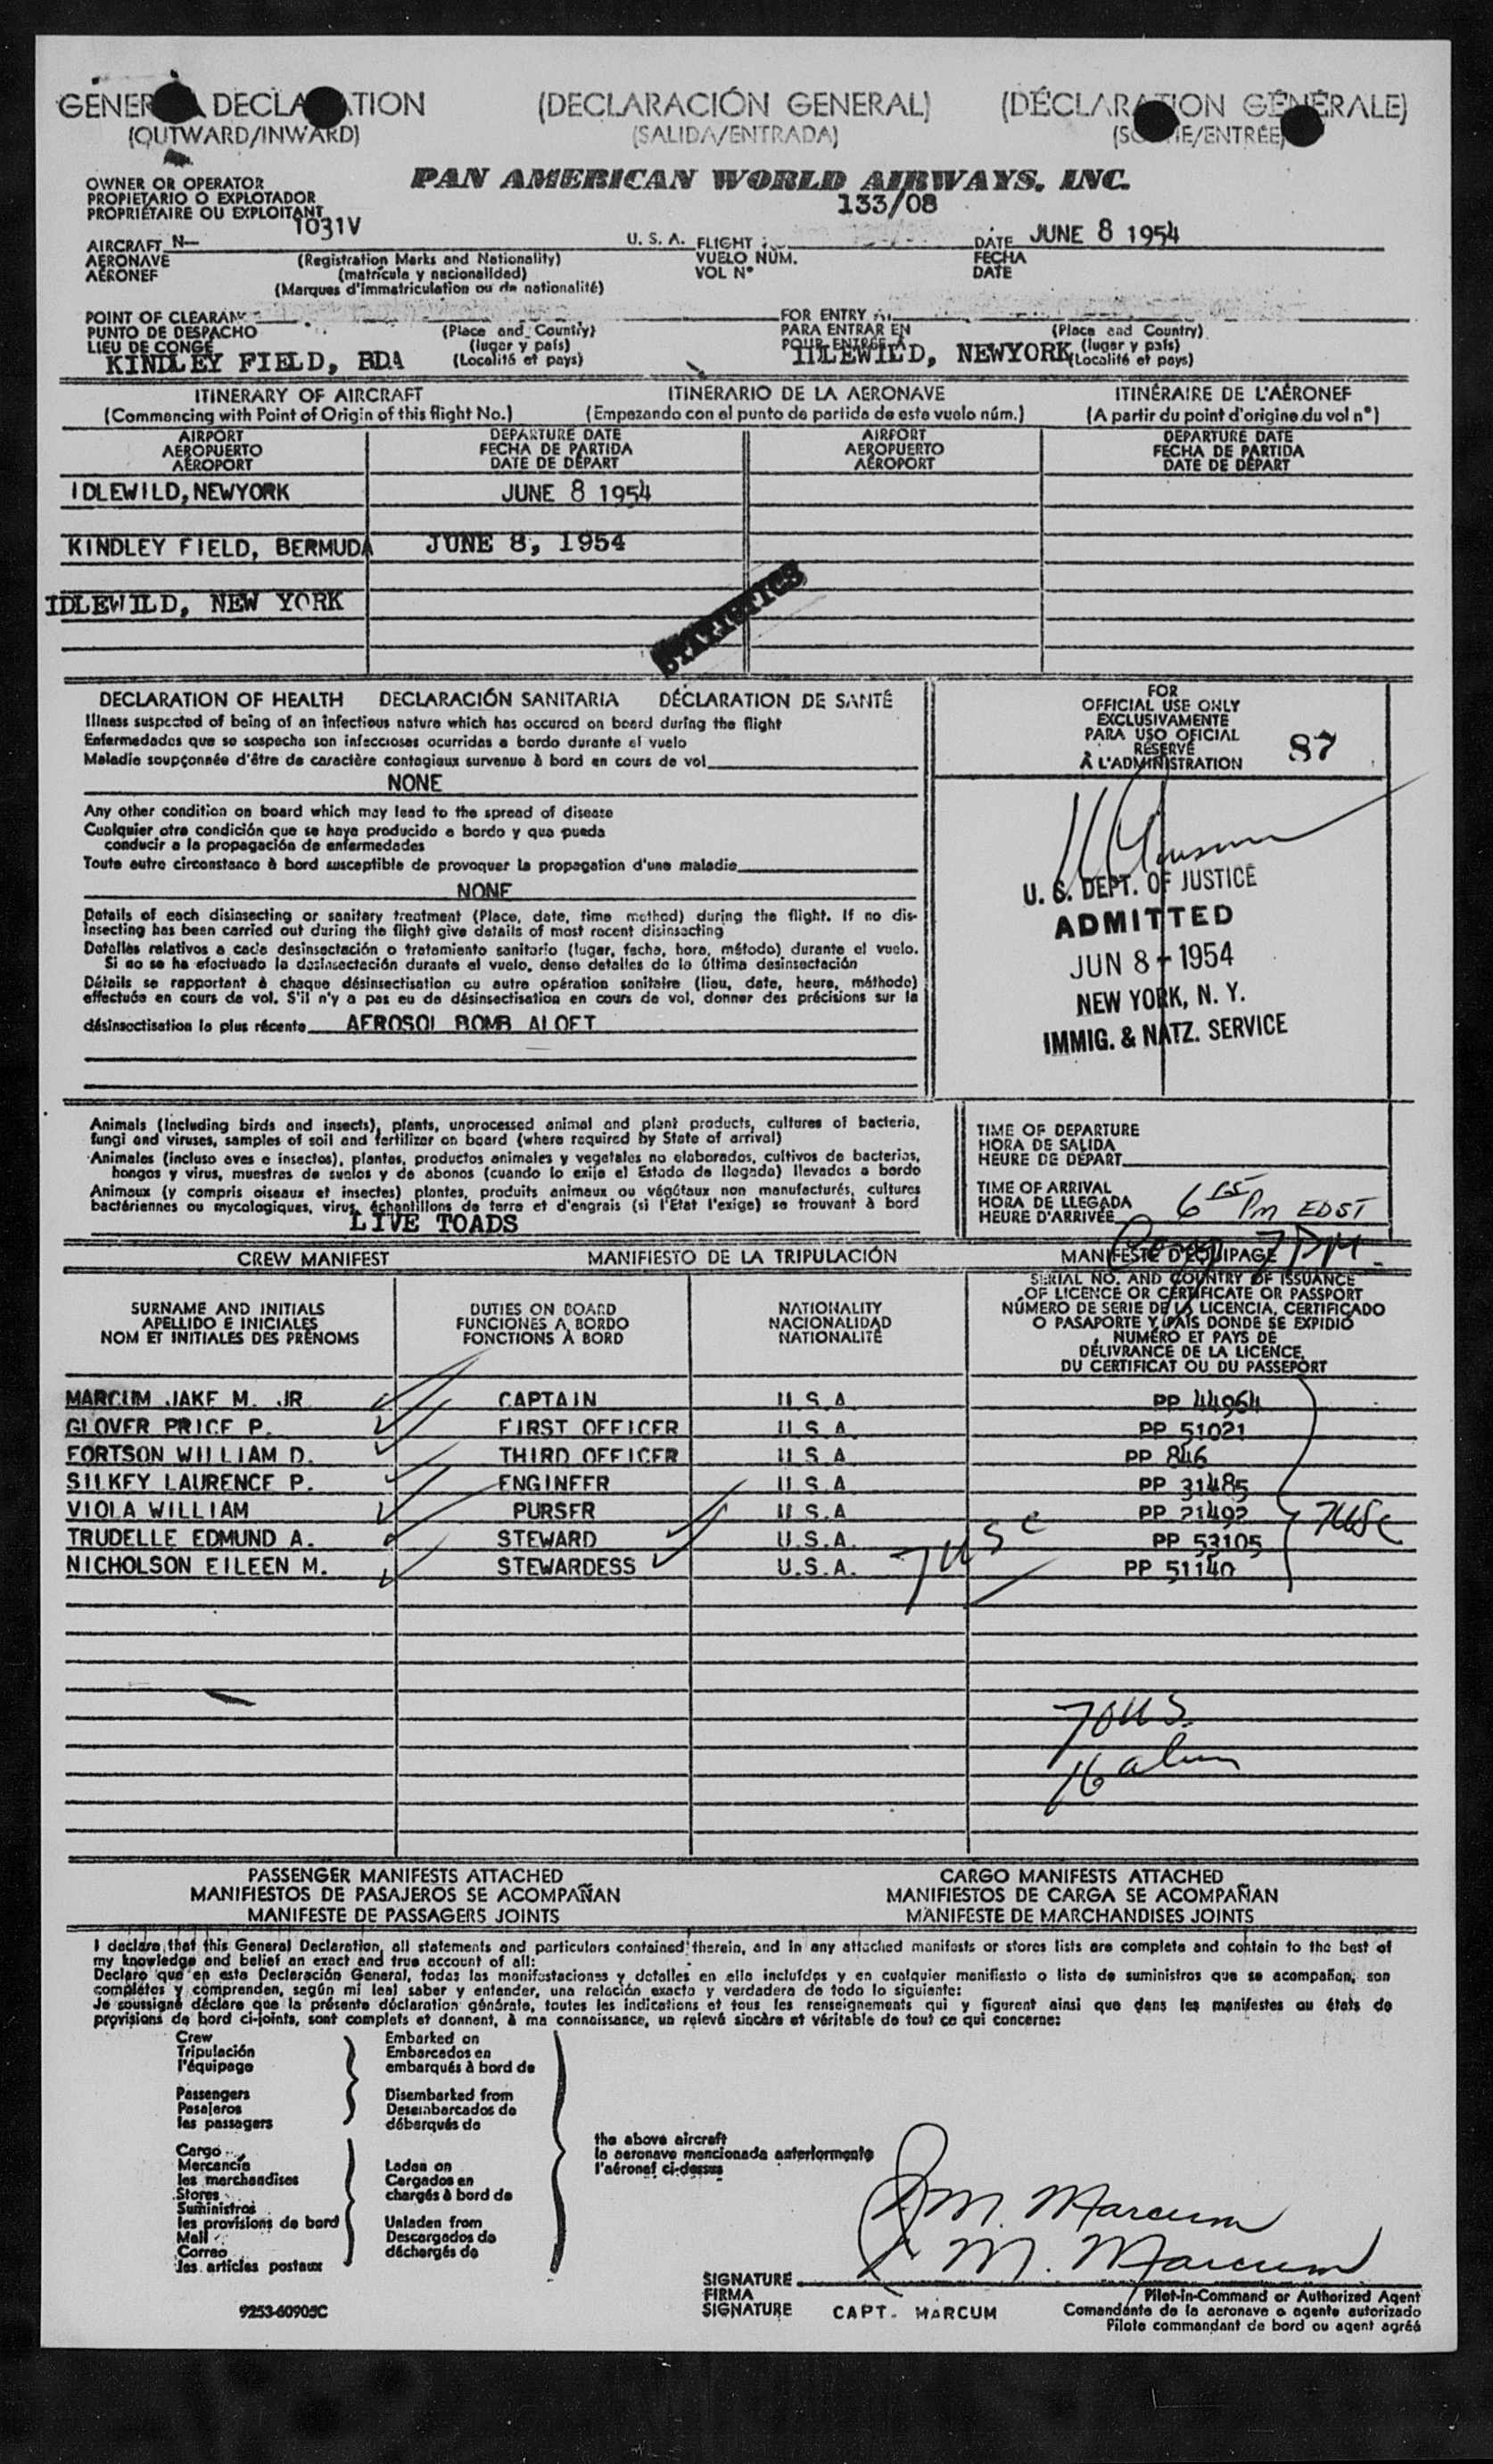 GENERAL DECLARATION (DECLARACIÓN GENERAL) (DÉCLARATION GÉNÉRALE)
(OUTWARD/INWARD) (SALIDA/ENTRADA) (SORTIE/ENTRÉE)
OWNER OR OPERATOR
PROPIETARIO O EXPLOTADOR
PROPRIÉTAIRE OU EXPLOITANT
PAN AMERICAN WORLD AIRWAYS, INC.
133/08
AIRCRAFT N— 1031V U. S. A. FLIGHT DATE JUNE 8 1954
AERONAVE (Registration Marks and Nationality) VUELO NÚM. FECHA
AÉRONEF (matrícula y nacionalidad) VOL Nº DATE
(Marques d'immatriculation ou de nationalité)
POINT OF CLEARANCE FOR ENTRY AT
PUNTO DE DESPACHO (Place and Country) PARA ENTRAR EN (Place and Country)
LIEU DE CONGÉ (lugar y país) POUR ENTRÉE À (lugar y país)
KINDLEY FIELD, BDA (Localité et pays) IDLEWILD, NEWYORK (Localité et pays)
ITINERARY OF AIRCRAFT ITINERARIO DE LA AERONAVE ITINÉRAIRE DE L'AÉRONEF
(Commencing with Point of Origin of this flight No.) (Empezando con el punto de partida de este vuelo núm.) (A partir du point d'origine du vol nº)
AIRPORT DEPARTURE DATE AIRPORT DEPARTURE DATE
AEROPUERTO FECHA DE PARTIDA AEROPUERTO FECHA DE PARTIDA
AÉROPORT DATE DE DÉPART AÉROPORT DATE DE DÉPART
IDLEWILD, NEWYORK JUNE 8 1954
KINDLEY FIELD, BERMUDA JUNE 8, 1954
IDLEWILD, NEW YORK
STATISTICS
DECLARATION OF HEALTH DECLARACIÓN SANITARIA DÉCLARATION DE SANTÉ
Illness suspected of being of an infectious nature which has occured on board during the flight
Enfermedades que se sospecha son infecciosas ocurridas a bordo durante el vuelo
Maladie soupçonnée d'être de caractère contagieux survenue à bord en cours de vol
NONE
Any other condition on board which may lead to the spread of disease
Cualquier otra condición que se haya producido a bordo y que pueda
conducir a la propagación de enfermedades
Toute autre circonstance à bord susceptible de provoquer la propagation d'une maladie
NONE
Details of each disinsecting or sanitary treatment (Place, date, time method) during the flight. If no dis-
insecting has been carried out during the flight give details of most recent disinsecting
Detalles relativos a cada desinsectación o tratamiento sanitario (lugar, fecha, hora, método) durante el vuelo.
Si no se ha efectuado la desinsectación durante el vuelo, dense detalles de la última desinsectación
Détails se rapportant à chaque désinsectisation ou autre opération sanitaire (lieu, date, heure, méthode)
effectuée en cours de vol. S'il n'y a pas eu de désinsectisation en cours de vol, donner des précisions sur la
désinsectisation la plus récente AEROSOL BOMB ALOFT
FOR
OFFICIAL USE ONLY
EXCLUSIVAMENTE
PARA USO OFICIAL
RÉSERVÉ
À L'ADMINISTRATION
87
U. S. DEPT. OF JUSTICE
ADMITTED
JUN 8 - 1954
NEW YORK, N. Y.
IMMIG. & NATZ. SERVICE
Animals (Including birds and insects), plants, unprocessed animal and plant products, cultures of bacteria,
fungi and viruses, samples of soil and fertilizer on board (where required by State of arrival)
Animales (incluso aves e insectos), plantas, productos animales y vegetales no elaborados, cultivos de bacterias,
hongos y virus, muestras de suelos y de abonos (cuando lo exija el Estado de llegada) llevados a bordo
Animaux (y compris oiseaux et insectes) plantes, produits animaux ou végétaux non manufacturés, cultures
bactériennes ou mycologiques, virus, échantillons de terre et d'engrais (si l'Etat l'exige) se trouvant à bord
LIVE TOADS
TIME OF DEPARTURE
HORA DE SALIDA
HEURE DE DÉPART
TIME OF ARRIVAL
HORA DE LLEGADA
HEURE D'ARRIVÉE 6 15 Pm EDST
7 PM
CREW MANIFEST MANIFIESTO DE LA TRIPULACIÓN MANIFESTE D'ÉQUIPAGE
SURNAME AND INITIALS
APELLIDO E INICIALES
NOM ET INITIALES DES PRÉNOMS
DUTIES ON BOARD
FUNCIONES A BORDO
FONCTIONS À BORD
NATIONALITY
NACIONALIDAD
NATIONALITÉ
SERIAL NO. AND COUNTRY OF ISSUANCE
OF LICENCE OR CERTIFICATE OR PASSPORT
NÚMERO DE SERIE DE LA LICENCIA, CERTIFICADO
O PASAPORTE Y PAÍS DONDE SE EXPIDIÓ
NUMÉRO ET PAYS DE
DÉLIVRANCE DE LA LICENCE,
DU CERTIFICAT OU DU PASSEPORT
MARCUM JAKE M. JR CAPTAIN U.S.A. PP 44964
GLOVER PRICE P. FIRST OFFICER U.S.A. PP 51021
FORTSON WILLIAM D. THIRD OFFICER U.S.A. PP 846
SILKEY LAURENCE P. ENGINEER U.S.A. PP 31485
VIOLA WILLIAM PURSER U.S.A. PP 21492
TRUDELLE EDMUND A. STEWARD U.S.A. PP 53105
NICHOLSON EILEEN M. STEWARDESS U.S.A. PP 51140
7 USC
7USC
70 US.
16 alien
PASSENGER MANIFESTS ATTACHED CARGO MANIFESTS ATTACHED
MANIFIESTOS DE PASAJEROS SE ACOMPAÑAN MANIFIESTOS DE CARGA SE ACOMPAÑAN
MANIFESTE DE PASSAGERS JOINTS MANIFESTE DE MARCHANDISES JOINTS
I declare that this General Declaration, all statements and particulars contained therein, and in any attached manifests or stores lists are complete and contain to the best of
my knowledge and belief an exact and true account of all:
Declaro que en esta Declaración General, todas las manifestaciones y detalles en ella incluídos y en cualquier manifiesto o lista de suministros que se acompañan, son
completos y comprenden, según mi leal saber y entender, una relación exacta y verdadera de todo lo siguiente:
Je soussigné déclare que la présente déclaration générale, toutes les indications et tous les renseignements qui y figurent ainsi que dans les manifestes ou états de
provisions de bord ci-joints, sont complets et donnent, à ma connaissance, un relevé sincère et véritable de tout ce qui concerne:
Crew Embarked on
Tripulación Embarcados en
l'équipage embarqués à bord de
Passengers Disembarked from
Pasajeros Desembarcados de
les passagers débarqués de
the above aircraft
la aeronave mencionada anteriormente
l'aéronef ci-dessus
Cargo
Mercancía Laden on
les marchandises Cargados en
Stores chargés à bord de
Suministros
les provisions de bord Unladen from
Mail Descargados de
Correo déchargés de
les articles postaux
J M. Marcum
J M. Marcum
SIGNATURE
FIRMA Pilot-in-Command or Authorized Agent
SIGNATURE CAPT. MARCUM Comandante de la aeronave o agente autorizado
Pilote commandant de bord ou agent agréé
9253-60905C